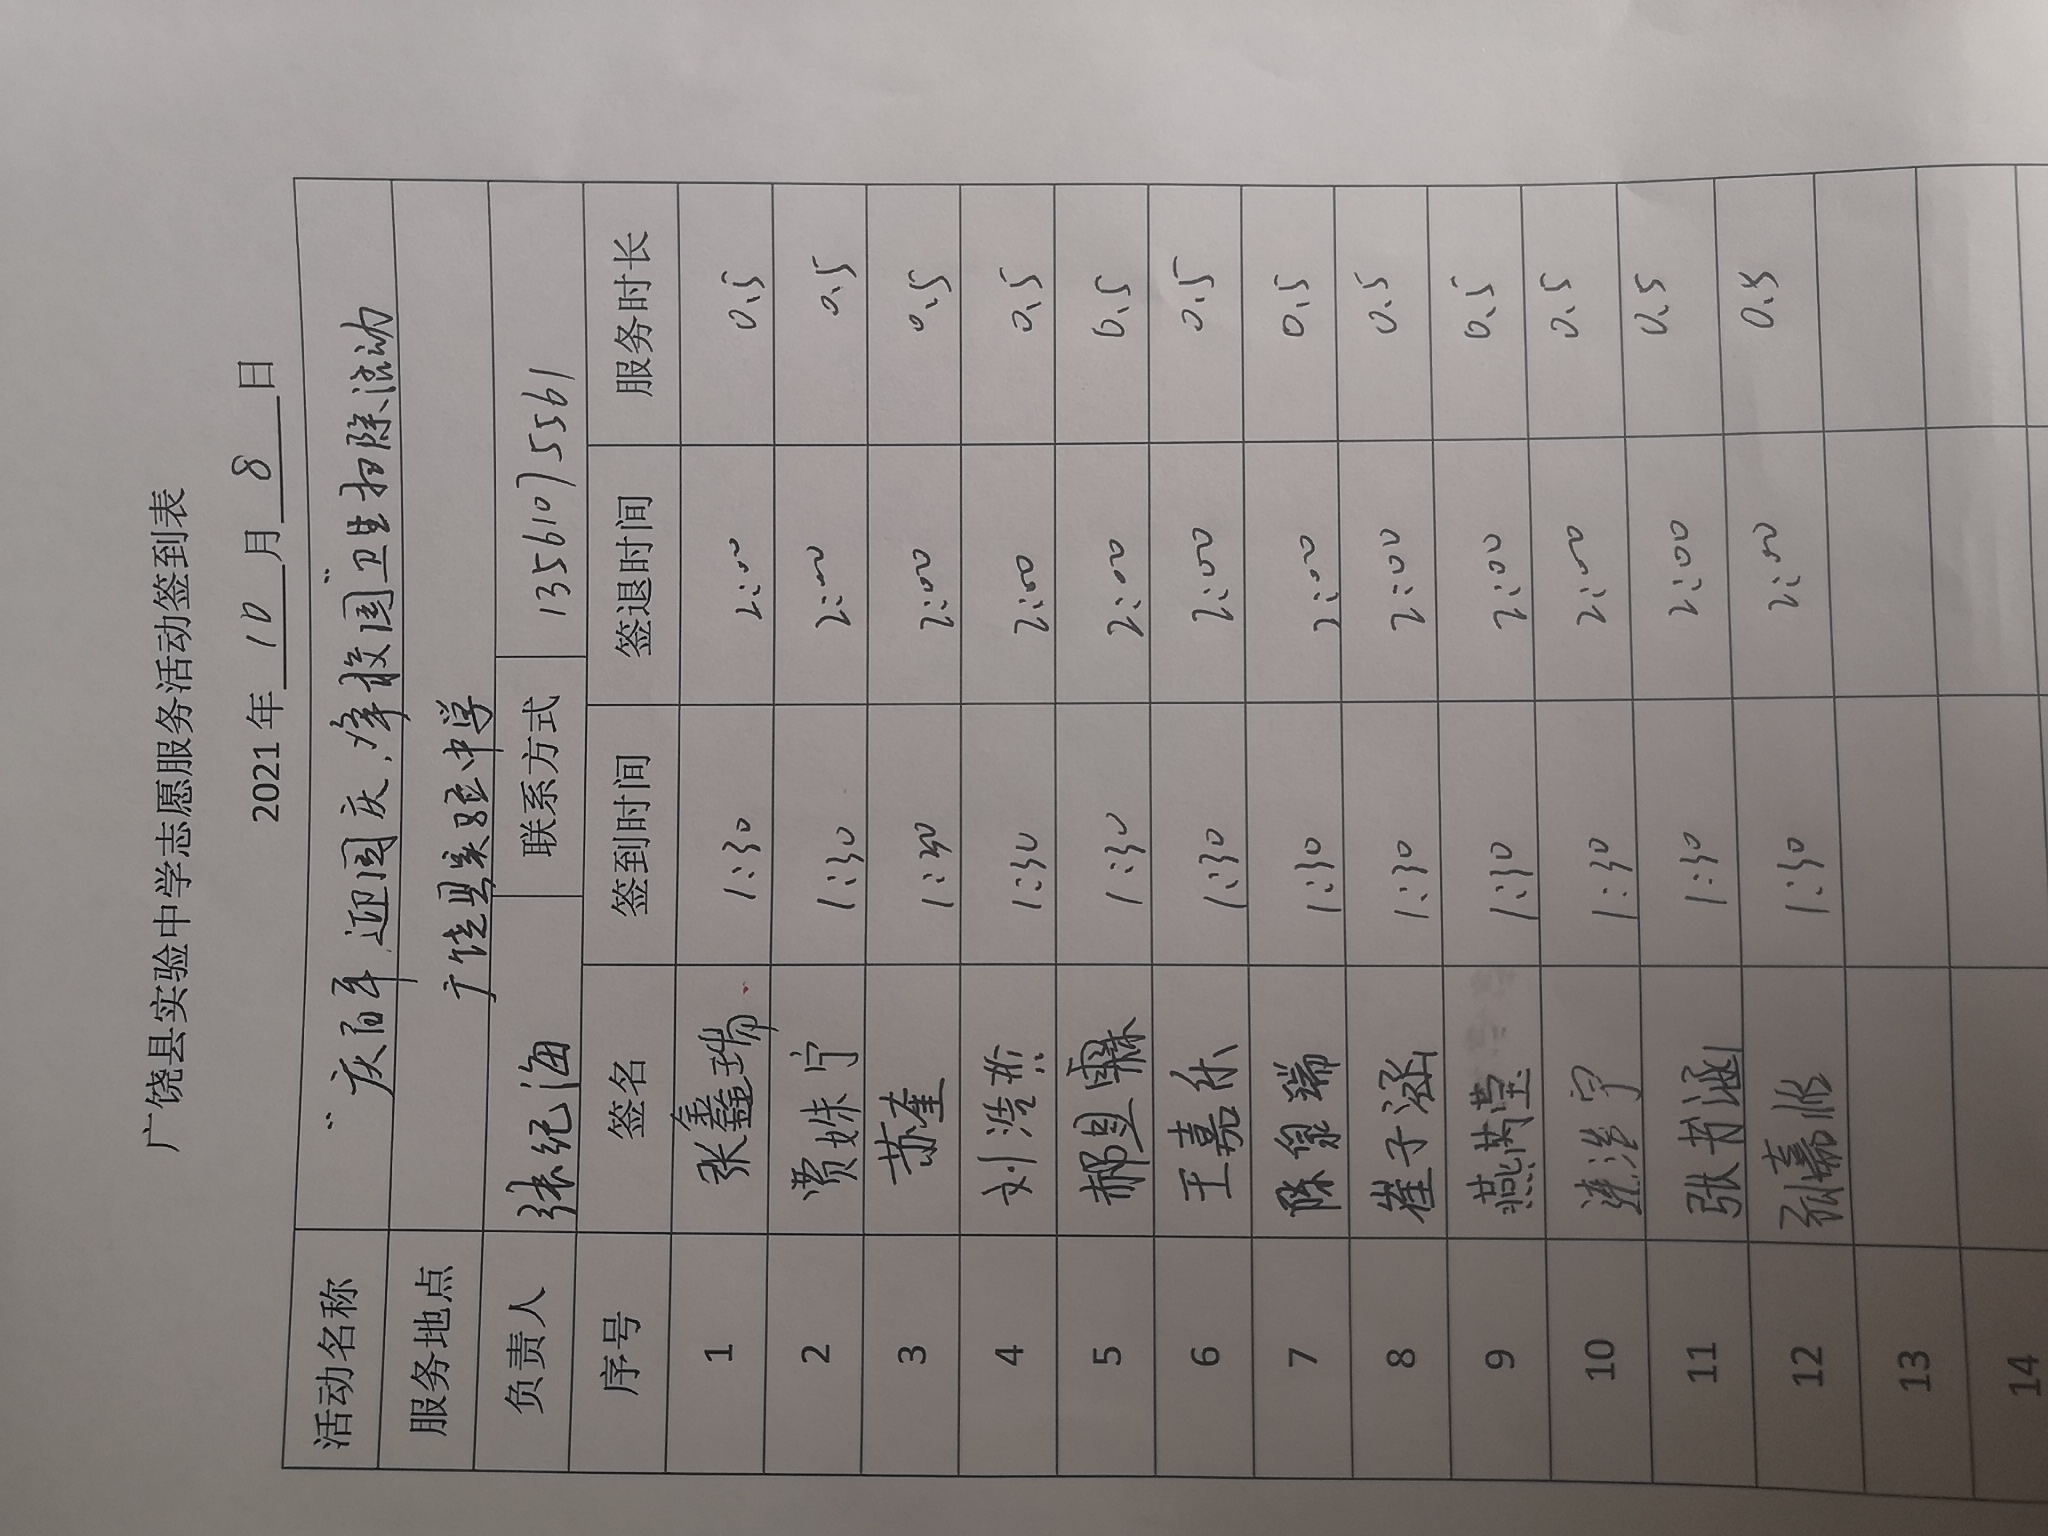 广饶县实验中学志愿服务活动签到表
2021年 10 月 8 日
活动名称 "庆百年,迎国庆,净校园"卫生扫除活动
服务地点 广饶县实验中学
负责人 张纪海 联系方式 13561075561
序号 签名 签到时间 签退时间 服务时长
1 张鑫瑞 1:30 2:00 0.5
2 贾姝宁 1:30 2:00 0.5
3 苏奎 1:30 2:00 0.5
4 刘浩 1:30 2:00 0.5
5 郝思霖 1:30 2:00 0.5
6 王嘉乐 1:30 2:00 0.5
7 陈泉瑞 1:30 2:00 0.5
8 崔子涵 1:30 2:00 0.5
9 燕茜莹 1:30 2:00 0.5
10 1:30 2:00 0.5
11 张书涵 1:30 2:00 0.5
12 嘉 1:30 2:00 0.5
13
14